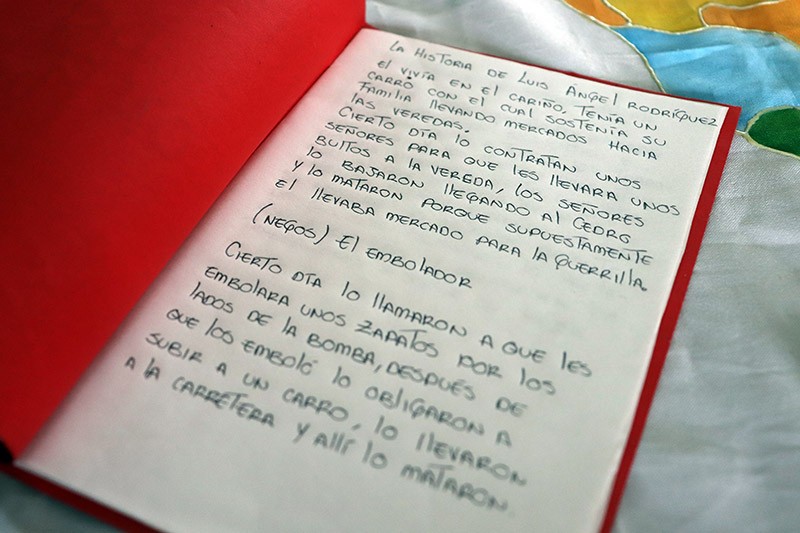 La Historia de Luis Angel Rodríguez
el vivía en el cariño, tenía un
carro con el cual sostenía su
familia llevando mercados hacia
las veredas.
Cierto día lo contratan unos
señores para que les llevara unos
bultos a la vereda, los señores
lo bajaron llegando al Cedro
y lo mataron porque supuestamente
el llevaba mercado para la guerrilla.
(Negos) El embolador
Cierto día lo llamaron a que les
embolara unos zapatos por los
lados de la bomba, después de
que los emboló lo obligaron a
subir a un carro, lo llevaron
a la carretera y allí lo mataron.